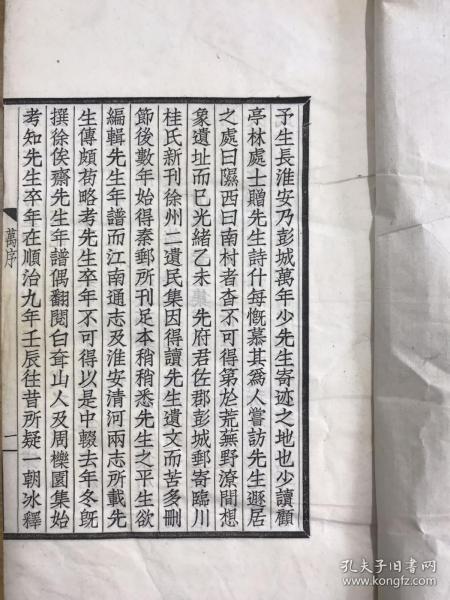 予生長淮安乃彭城萬年少先生寄迹之地也少讀顧
亭林處士贈先生詩什每慨慕其爲人嘗訪先生遯居
之處曰隰西曰南村者杳不可得第於荒蕪野潦間想
象遺址而已光緒乙未 先府君佐郡彭城郵寄臨川
桂氏新刊徐州二遺民集因得讀先生遺文而苦多刪
節後數年始得秦郵所刊足本稍稍悉先生之平生欲
編輯先生年譜而江南通志及淮安清河兩志所載先
生傳頗荀略考先生卒年不可得以是中輟去年冬旣
撰徐俟齋先生年譜偶翻閱白耷山人及周櫟園集始
考知先生卒年在順治九年壬辰往昔所疑一朝冰釋
萬序
一
孔夫子旧书网
www.kongfz.com